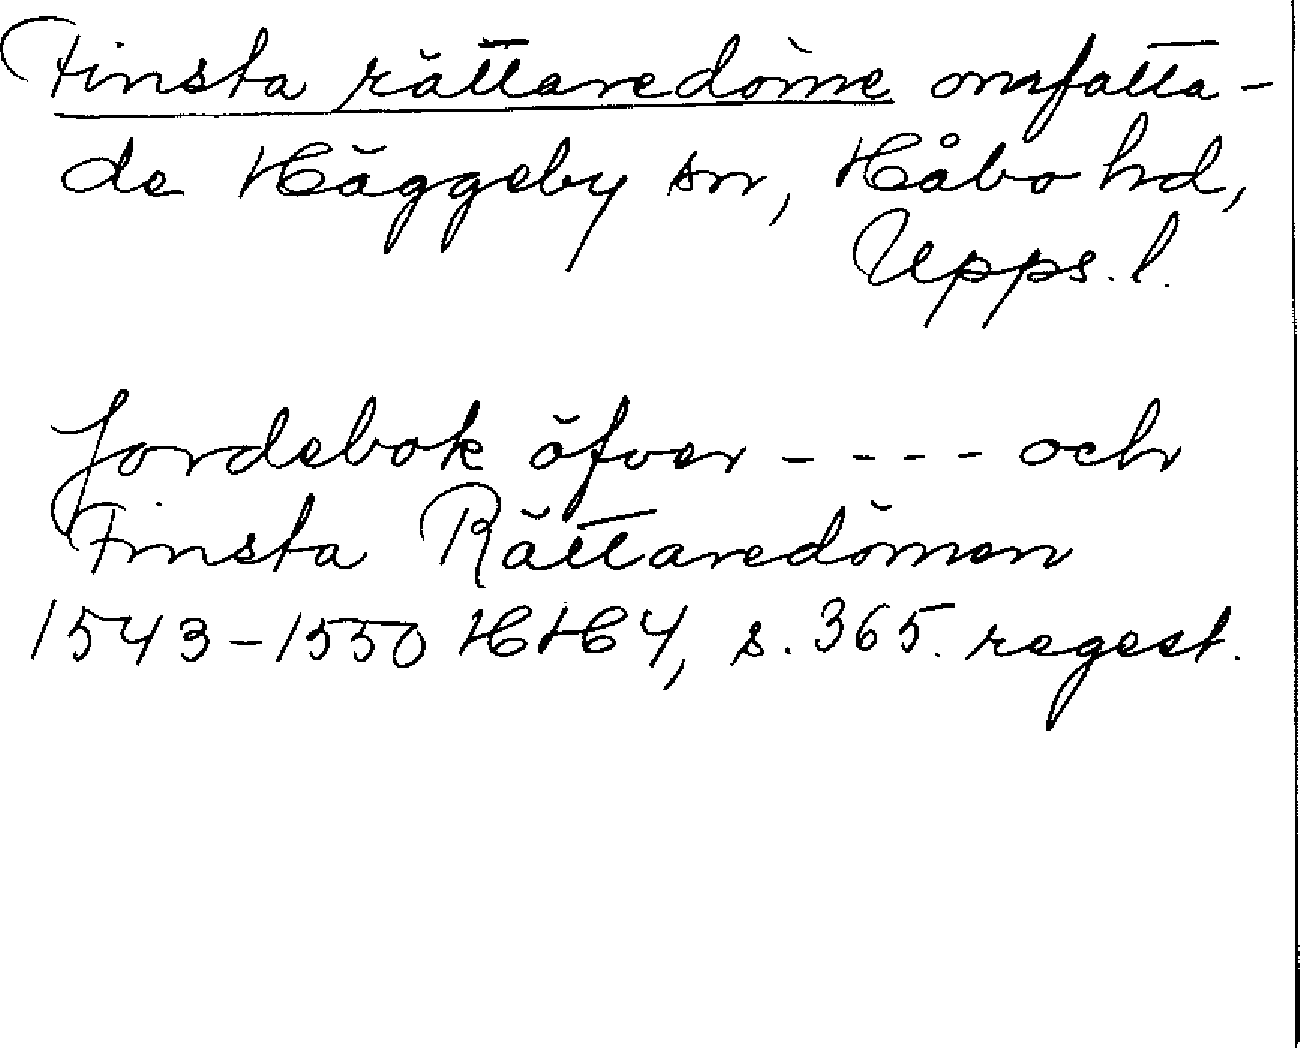 Finsta rättaredöme omfatta-
de Häggeby sn, Håbo hd,
Upps. l.
Jordebok öfver - - - - och
Finsta Rättaredömen
1543-1550 HH 4, s. 365. regest.